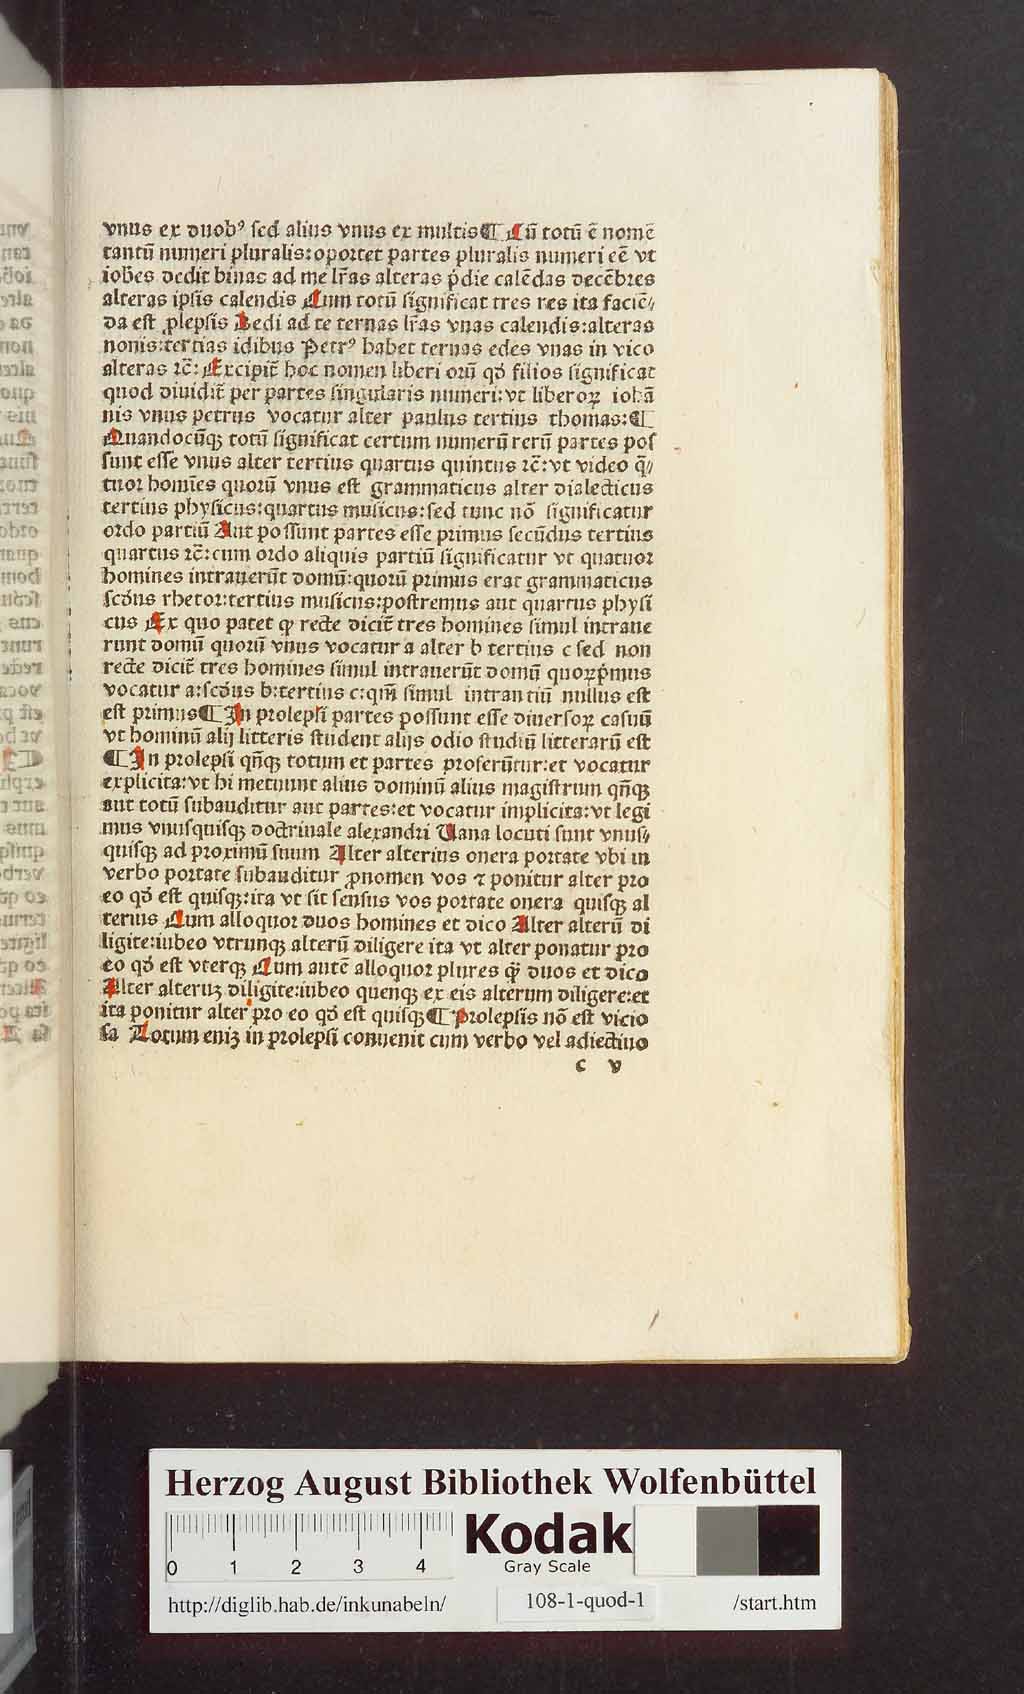 vnus ex duobꝰ sed alius vnus ex multis¶ Cū totū ē nomē
tantū numeri pluralis: oportet partes pluralis numeri eē vt
iohēs dedit binas ad me lr̄as alteras p̄die calēdas decēbres
alteras ipsis calendis Cum totū significat tres res ita faciē⸗
da est ꝓlepsis Dedi ad te ternas lr̄as vnas calendis: alteras
nonis: tertias idibus Petrꝰ habet ternas edes vnas in vico
alteras ⁊c̄: Excipit̄ hoc nomen liberi orū qd̄ filios significat
quod diuidit̄ per partes singularis numeri: vt liberoꝝ iohā
nis vnus petrus vocatur alter paulus tertius thomas: ¶
Quandocūqꝫ totū significat certum numerū rerū partes pos
sunt esse vnus alter tertius quartus quintus ⁊c̄: vt video q̄⸗
tuor homīes quorū vnus est grammaticus alter dialecticus
tertius physicus: quartus musicus: sed tunc nō significatur
ordo partiū Aut possunt partes esse primus secūdus tertius
quartus ⁊c̄: cum ordo aliquis partiū significatur vt quatuor
homines intrauerūt domū: quorū primus erat grammaticus
scd̄us rhetor: tertius musicus: postremus aut quartus physi
cus Ex quo patet ꝙ recte dicit̄ tres homines simul intraue
runt domū quorū vnus vocatur a alter b tertius c sed non
recte dicit̄ tres homines simul intrauerūt domū quoꝝ p̄mus
vocatur a: scd̄us b: tertius c: qm̄ simul intrantiū nullus est
est primus¶ In prolepsi partes possunt esse diuersoꝝ casuū
vt hominū alij litteris student alijs odio studiū litterarū est
¶ In prolepsi qn̄qꝫ totum et partes proferūtur: et vocatur
explicita: vt hi metuunt alius dominū alius magistrum qn̄qꝫ
aut totū subauditur aut partes: et vocatur implicita: vt legi
mus vnusquisqꝫ doctrinale alexandri Vana locuti sunt vnus⸗
quisqꝫ ad proximū suum Alter alterius onera portate vbi in
verbo portate subauditur ꝓnomen vos ⁊ ponitur alter pro
eo qd̄ est quisqꝫ: ita vt sit sensus vos portate onera quisqꝫ al
terius Cum alloquor duos homines et dico Alter alterū di
ligite: iubeo vtrunqꝫ alterū diligere ita vt alter ponatur pro
eo qd̄ est vterqꝫ Cum autē alloquor plures ꝙ̄ duos et dico
Alter alteruꝫ diligite: iubeo quenqꝫ ex eis alterum diligere: et
ita ponitur alter pro eo qd̄ est quisqꝫ¶ Prolepsis nō est vicio
sa Totum eniꝫ in prolepsi conuenit cum verbo vel adiectiuo
c v
Herzog August Bibliothek Wolfenbüttel
0 1 2 3 4
Kodak
Gray Scale
http://diglib.hab.de/inkunabeln/ 108-1-quod-1 /start.htm